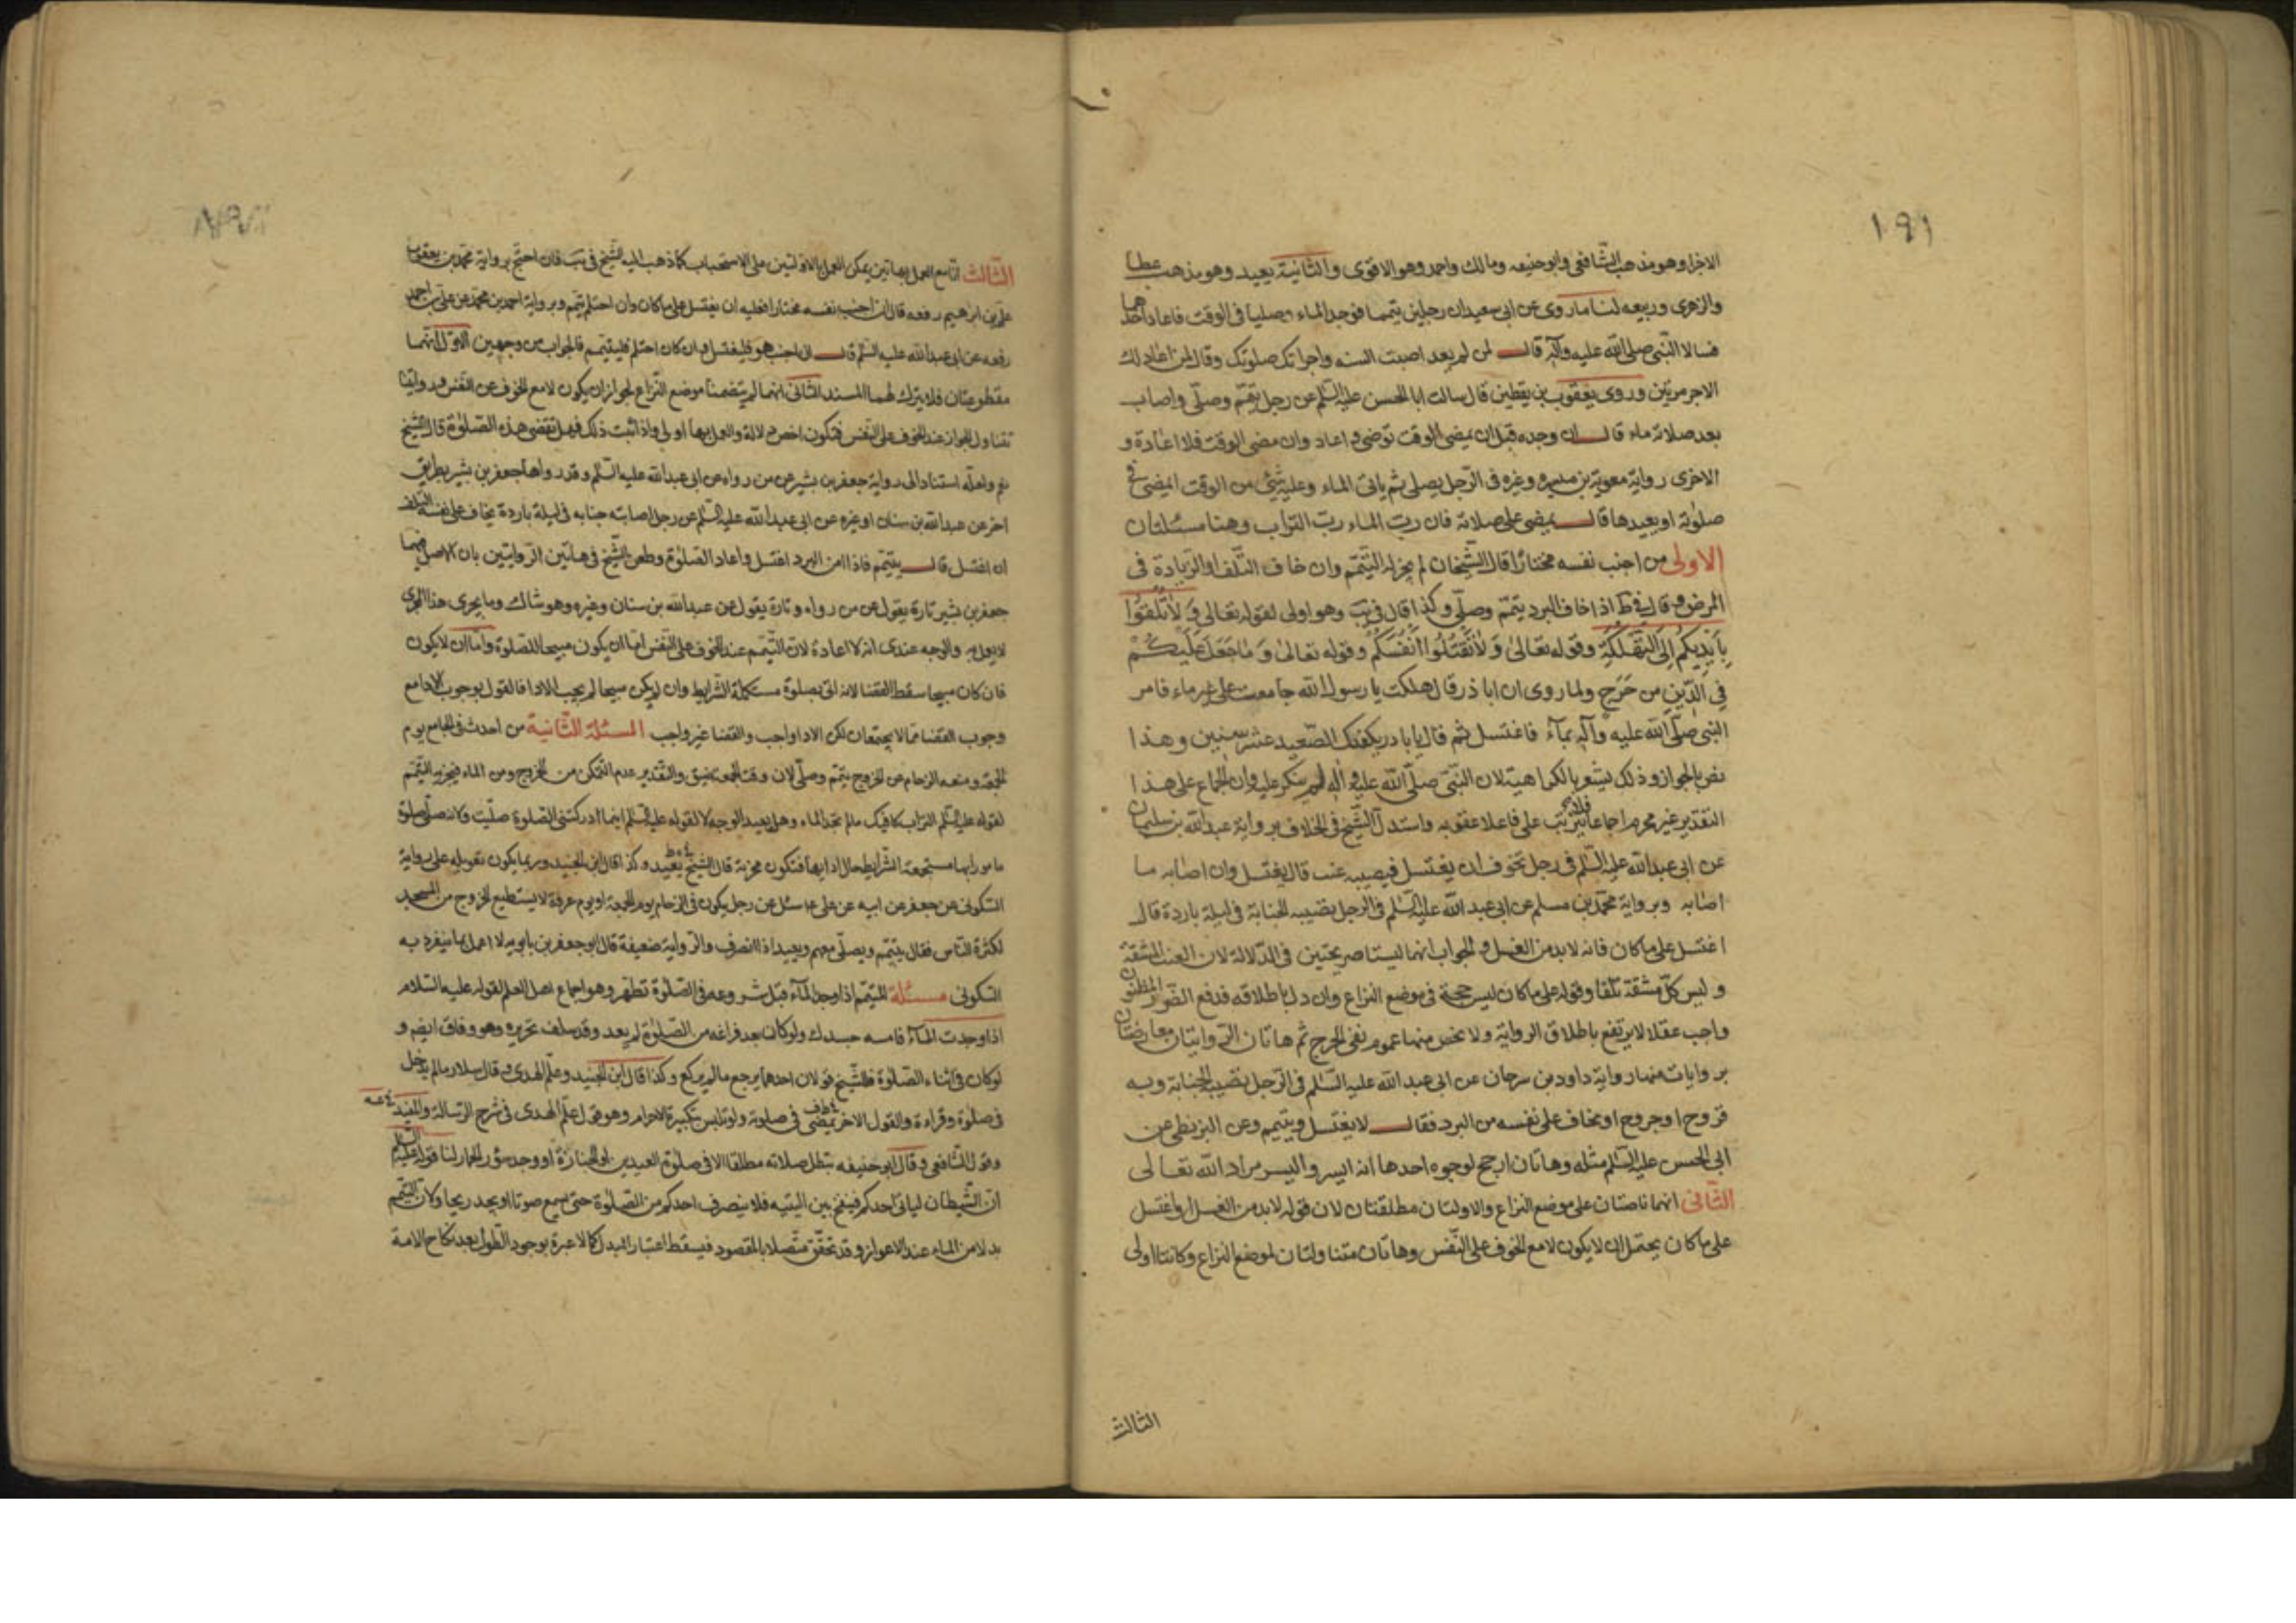 ١٩١
الاجزا وهو مذهب الشافعی وابو حنیفه ومالک واحمد وهو الاقوی والثانیة یعید وهو مذهب عطا
والزهری وربیعه لنا ما روی عن ابی سعید ان رجلین تیمما فوجدا الماء وصلیا فی الوقت فاعاد احدهما
فسالا النبی صلی الله علیه وآله قال لمن لم یعد اصبت السنه واجزاتک صلوتک وقال للذی اعاد لک
الاجر مرتین وروی یعقوب بن یقطین قال سالت ابا الحسن علیه السلم عن رجل تیمم وصلی واصاب
بعد صلاته ماء قال ان وجده قبل ان یمضی الوقت توضی واعاد وان مضی الوقت فلا اعادة و
الاخری روایة معویة بن میسره وغیره فی الرجل یصلی ثم یاتی الماء وعلیه شیئ من الوقت ایمضی فی
صلوته او یعیدها قال یمضی علی صلاته فان رب الماء رب التراب وهنا مسئلتان
الاولی من اجنب نفسه مختارا قال الشیخان لم یجز له التیمم وان خاف التلف او الزیادة فی
المرض وقال فی ط اذا خاف البرد یتمم وصلی وکذا قال فی یب وهو اولی لقوله تعالی وَلاٰ تُلْقُوا
بِاَیْدِیکُم اِلَی التَّهْلُکَةِ وقوله تعالی وَ لاٰ تَقْتُلُوا اَنْفُسَکُم وقوله تعالی وَ مٰا جَعَلَ عَلَیْکُمْ
فِی الدّینِ مِن حَرَجٍ ولما روی ان ابا ذر قال هلکت یا رسول الله جامعت علی غیر ماء فامر
النبی صلی الله علیه وآله بمآء فاغتسل ثم قال یابا ذر یکفیک الصعید عشر سنین وهذا
نص بالجواز وذلک لیشعر بالکراهیة لان النبی صلی الله علیه وآله لم ینکر علیه وان الجماع علی هذا
التقدیر غیر محرم اجماعا فلا یترتب علی فاعلا عقوبه واستدل الشیخ فی الخلاف بروایة عبد الله بن سلیمان
عن ابی عبد الله علیه السلم فی رجل تخوف ان یغتسل فیصیبه عنت قال یغتسل وان اصابه ما
اصابه وبروایة محمد بن مسلم عن ابی عبد الله علیه السلم فی الرجل تصیبه الجنابة فی لیلة باردة قال
اغتسل علی ما کان فانه لا بد من الغسل والجواب انهما لیستا صریحتین فی الدلالة لان العنت المشقة
ولیس کل مشقة تلفا وقوله علی ما کان لیس حجة فی موضع النزاع وان دل باطلاقه فدفع الضرر المظنون
واجب عقلا لا یرتفع باطلاق الروایة ولا یخص منها عموم نفی الحرج ثم هاتان الروایتان معارضتان
بروایات منها روایة داود بن سرحان عن ابی عبد الله علیه السلم فی الرجل تصیبه الجنابة وبه
قروح او جروح او یخاف علی نفسه من البرد فقال لا یغتسل ویتیمم وعن البزنطی عن
ابی الحسن علیه السلم مثله وهاتان ارجح لوجوه احدها انه ایسر والیسر مراد الله تعالی
الثانی انهما ناصتان علی موضع النزاع والاولتان مطلقتان لان قوله لا بد من الغسل او اغتسل
علی ما کان یحتمل ان لا یکون لامع الخوف علی النفس وهاتان متناولتان لموضع النزاع وکانتا اولی
الثالث
الثالث ان مع العمل بهاتین یمکن العمل بالاولتین علی الاستحباب کما ذهب الیه الشیخ فی یب فان احتج بروایة محمد بن یعقوب
علی بن ابرهیم رفعه قال ان اجنب نفسه مختارا فعلیه ان یغتسل علی ما کان وان احتلم یتمم وبروایة احمد بن محمد عن علی بن احمد
رفعه عن ابی عبد الله علیه السلم قال ان اجنب هو فلیغتسل وان کان احتلم فلیتیمم فالجواب من وجهین الاول انهما
مقطوعتان فلا یترک لهما المسند الثانی انهما لم یتضمنا موضع النزاع لجواز ان یکون لامع الخوف عن النفس وروایتنا
تتناول الجواز عند الخوف علی النفس فتکون اخص دلالة والعمل بها اولی واذا ثبت ذلک فهل تقضی هذه الصلوة قال الشیخ
نعم ولعله استنادا الی روایة جعفر بن بشیر عن من رواه عن ابی عبد الله علیه السلم وقد رواها جعفر بن بشیر بطریق
اخر عن عبد الله بن سنان او غیره عن ابی عبد الله علیه السلم عن رجل اصابته جنابه فی لیلة باردة یخاف علی نفسه التلف
ان اغتسل قال یتیمم فاذا امن البرد اغتسل واعاد الصلوة وطعن الشیخ فی هاتین الروایتین بان الاصل فیهما
جعفر بن بشیر تارة یقول عن من رواه وتارة یقول عن عبد الله بن سنان وغیره وهو شاک وما یجری هذا المجری
لا یعمل به والوجه عندی انه لا اعادة لان التیمم عند الخوف علی النفس اما ان یکون مبیحا للصلوة واما ان لا یکون
فان کان مبیحا سقط القضا لانه اتی بصلوة مستکملة الشرایط وان لم یکن مبیحا لم یجب الادا فالقول بوجوب الادا مع
وجوب القضا مما لا یجتمعان لکن الادا واجب والقضا غیر واجب المسئلة الثانیة من احدث فی الجامع یوم
الجمعة ومنعه الزحام من الخروج یتمم وصلی لان وقت الجمعة تضیق والتقدیر عدم التمکن من الخروج ومن الماء فیجزیه التیمم
لقوله علیه السلم التراب کافیک ما لم تجد الماء وهل یعید الوجه لا لقوله علیه السلم اینما ادرکتنی الصلوة صلیت ولانه صلی صلوة
مامورا بها مستجمعة الشرایط حال ادایها فتکون مجزیة قال الشیخ یعید وکذا قال ابن الجنید وربما یکون تعویله علی روایة
السکونی عن جعفر عن ابیه عن علی ع سئل عن رجل یکون فی الزحام یوم الجمعة او یوم عرفة لا یستطیع الخروج من المسجد
لکثرة الناس فقال یتیمم ویصلی معهم ویعید اذا انصرف والروایة ضعیفة قال ابو جعفر بن بابویه لا اعمل بما ینفرد به
السکونی مسئلة المتیمم اذا وجد المآء قبل شروعه فی الصلوة تطهر وهو اجماع اهل العلم لقوله علیه السلام
اذا وجدت المآء فامسه جسدک ولو کان بعد فراغه من الصلوة لم یعد وقد سلف تحریره وهو وفاق ایضم و
لو کان فی اثناء الصلوة فللشیخ قولان احدهما یرجع ما لم یرکع وکذا قال ابن الجنید وعلم الهدی وقال سلار ما لم یدخل
فی صلوة وقراءة والقول الاخر یمضی فی صلوته ولو تلبس بتکبیرة الاحرام وهو قول علم الهدی فی شرح الرسالة والمفید
وقول الشافعی وقال ابو حنیفه تبطل صلاته مطلقا الا فی صلوة العیدین او الجنازة او وجد سؤر الحمار لنا قوله علیه السلم
ان الشیطان لیاتی احدکم فینفخ بین الیتیه فلا ینصرف احدکم من الصلوة حتی یسمع صوتا او یجد ریحا ولان التیمم
بدلا من الماء عند الاعواز وقد تحقق متصلا بالمقصود فیسقط اعتبار المبدل کما لا عبرة بوجود الطول بعد نکاح الامة